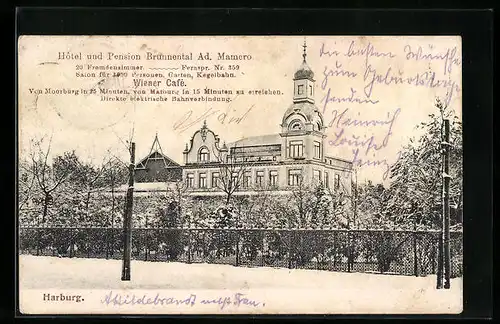 Hôtel und Pension Brunnental Ad. Mamero
20 Fremdenzimmer. Fernspr. Nr. 359
Salon für 1000 Personen, Garten, Kegelbahn.
Wiener Café.
Von Moorburg in 25 Minuten, von Harburg in 15 Minuten zu erreichen.
Direkte elektrische Bahnverbindung.
Die besten Wünsche
zum Geburtstage
senden
Heinrich
Louise
Heinz
Harburg.
Hildebrandt nebst Frau